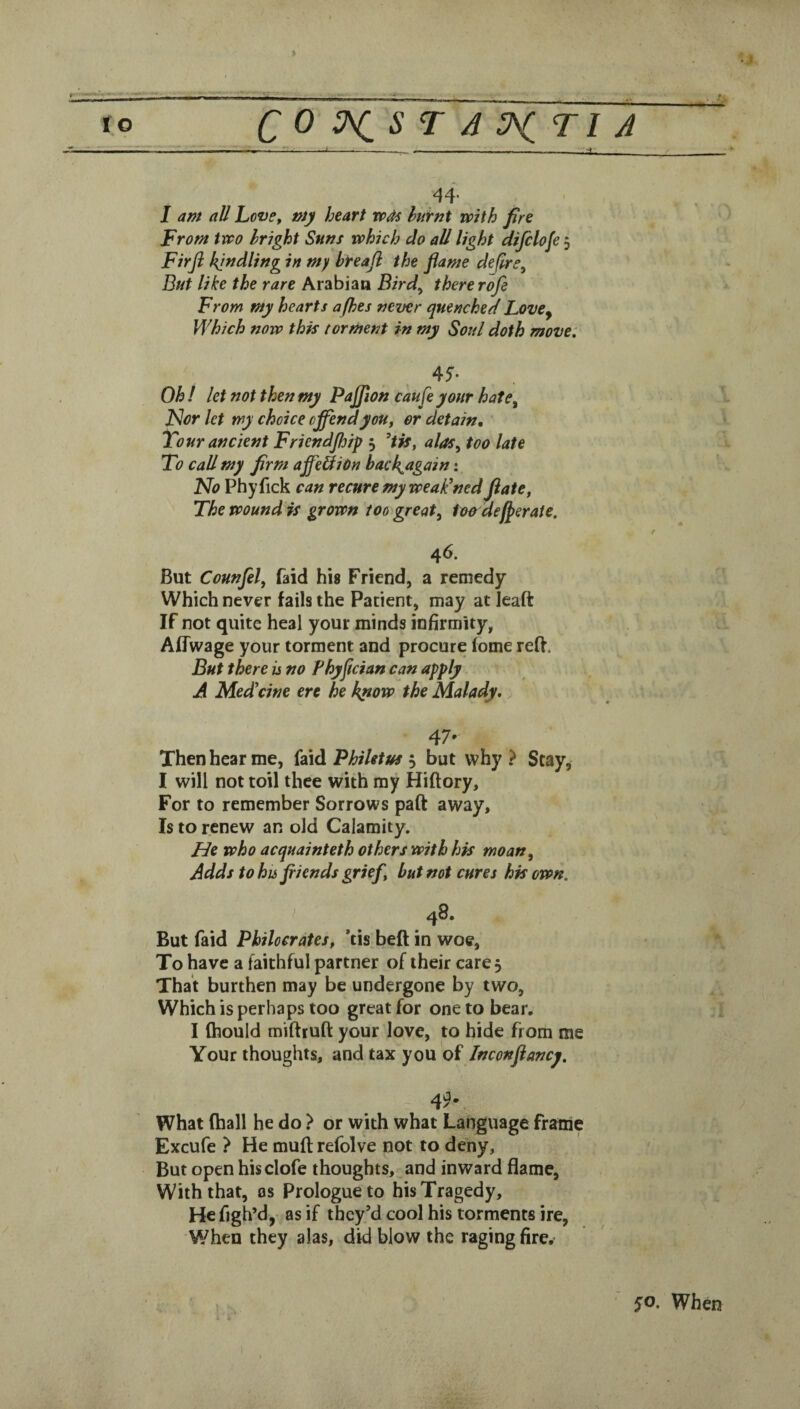 10 CONSTANTIA
44.
I am all Love, my heart was burnt with fire
From two bright Suns which do all light diſcloſe ;
Firſt kindling in my breaſt the flame deſire,
But like the rare Arabian Bird, there roſe
From my hearts aſhes never quenched Love,
Which now this torment in my Soul doth move.
45.
Oh! let not then my Paſſion cauſe your hate,
Nor let my choice offend you, or detain.
Your ancient Friendſhip ; 'tis, alas, too late
To call my firm affection back again :
No Phyſick can recure my weak'ned ſtate,
The wound is grown too great, too deſperate.
46.
But Counſel, ſaid his Friend, a remedy
Which never fails the Patient, may at leaſt
If not quite heal your minds infirmity,
Aſſwage your torment and procure ſome reſt.
But there is no Phyſician can apply
A Med'cine ere he know the Malady.
47.
Then hear me, ſaid Philetus ; but why ? Stay,
I will not toil thee with my Hiſtory,
For to remember Sorrows paſt away,
Is to renew an old Calamity.
He who acquainteth others with his moan,
Adds to his friends grief, but not cures his own.
48.
But ſaid Philocrates, 'tis beſt in woe,
To have a faithful partner of their care ;
That burthen may be undergone by two,
Which is perhaps too great for one to bear.
I ſhould miſtruſt your love, to hide from me
Your thoughts, and tax you of Inconſtancy.
49.
What ſhall he do ? or with what Language frame
Excuſe ? He muſt reſolve not to deny,
But open his cloſe thoughts, and inward flame,
With that, as Prologue to his Tragedy,
He ſigh'd, as if they'd cool his torments ire,
When they alas, did blow the raging fire.
50. When